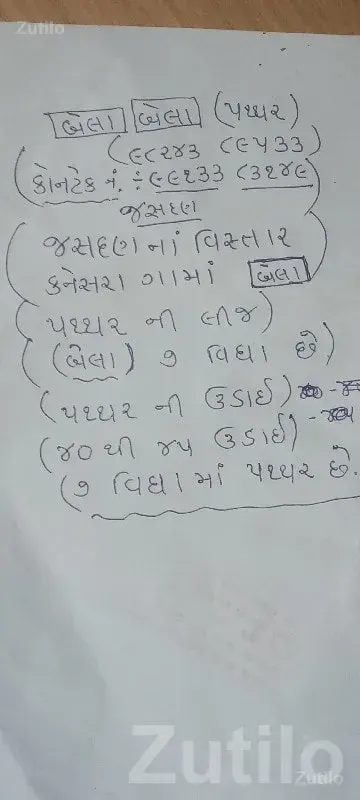 Zutilo
બેલા બેલા (પથ્થર)
(૯૮૨૪૩ ૮૯૫૩૩)
(કોનટેક નં. ÷ ૯૯૧૩૩ ૮૩૧૪૯)
જસદણ
જસદણ નાં વિસ્તાર
કનેસરા ગામાં બેલા
પથ્થર ની લીજ)
(બેલા) ૭ વિઘા છે)
(પથ્થર ની ઉડાઈ)
(૪૦ થી ૪૫ ઉડાઈ)
(૭ વિઘામાં પથ્થર છે.
Zutilo
Zutilo